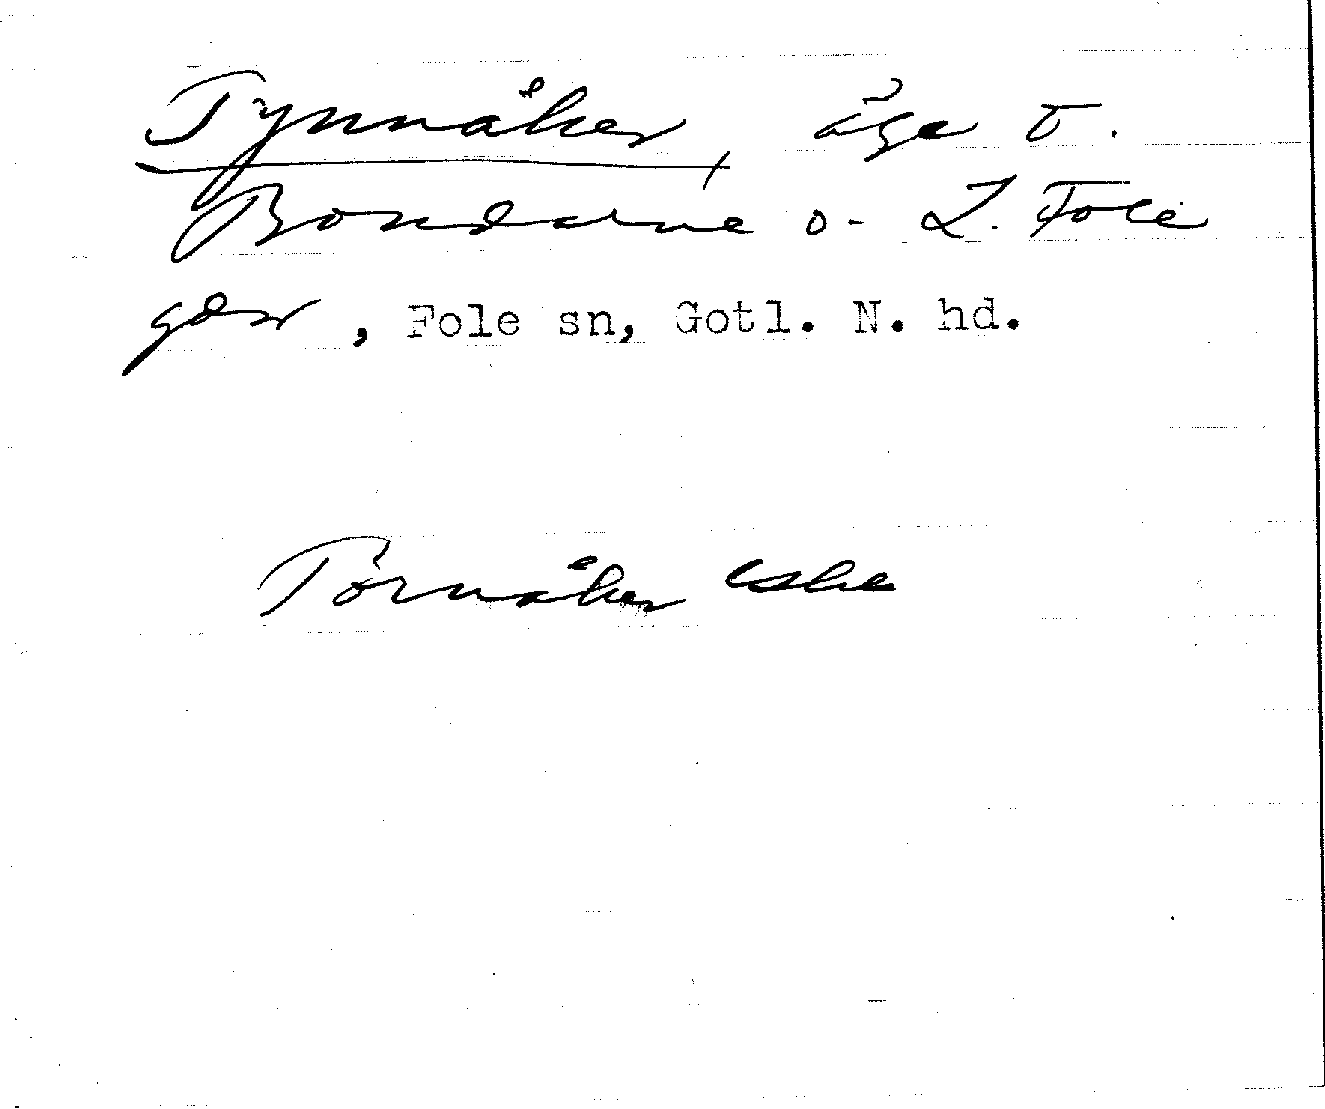 Tynnåker, äga t.
Bondarve o. L. Fole
gdr, Fole sn, Gotl. N. hd.
Törnåker eske